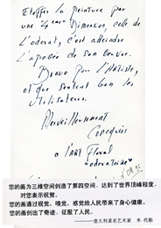 Etoffer la peinture par
une 4ème Dimension, celle de
l'odorat, c'est atteindre
l'apogée de son oeuvre.
Bravo pour l'Artiste,
et que surtout Gog les
Utilisateurs.
Merveilleusement
à l'Art
Floral
您的画为三维空间创造了第四空间，达到了世界顶峰程度，
对您表示祝贺。
您的画通过视觉、嗅觉、感觉给人民带来了身心健康。
您的画创出了奇迹，征服了人民。
——意大利著名艺术家 米.代勒